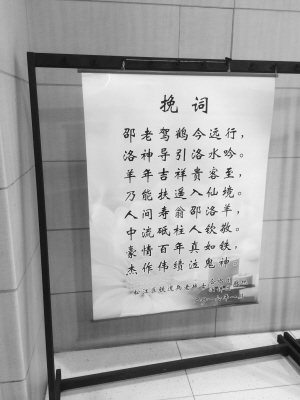 挽词
邵老驾鹤今远行，
洛神导引洛水吟。
羊年吉祥贵客至，
乃能扶遥入仙境。
人间寿翁邵洛羊，
中流砥柱人钦敬。
豪情百年真如铁，
杰作伟绩泣鬼神